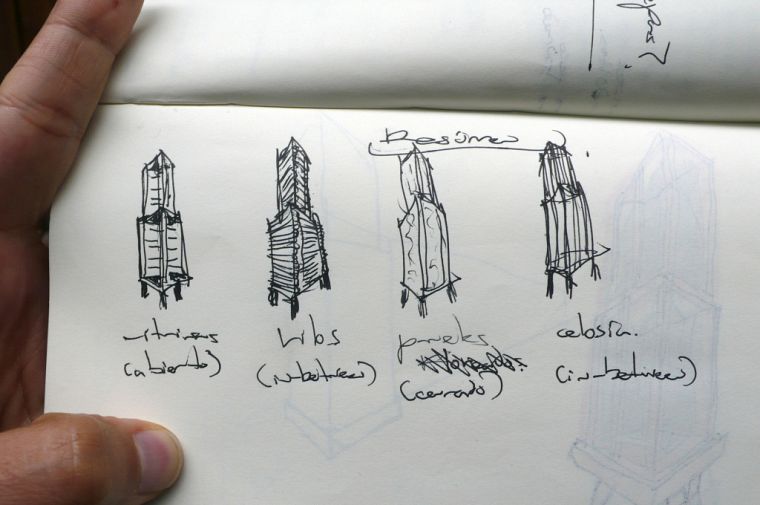 Resúmen
vitrinas
(abierto)
hilos
(in-between)
paneles
(cerrado)
celosía.
(in-between)